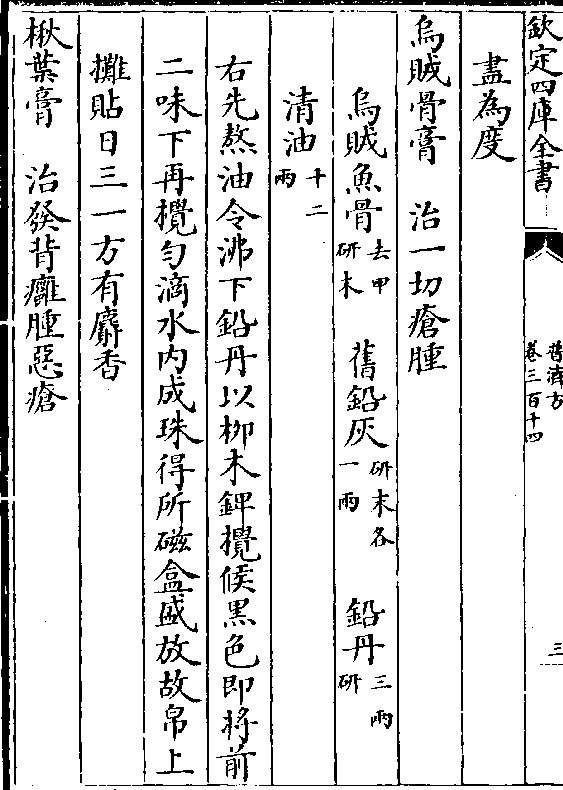 欽定四庫全書
普濟方
卷三百十四
三
盡為度
烏賊骨膏　治一切瘡腫
烏賊魚骨去甲研末　舊鉛灰研末各一兩　鉛丹三兩研
清油十二兩
右先熬油令沸下鉛丹以柳木錍攪候黑色即將前
二味下再攪勻滴水内成珠得所磁盒盛放故帛上
攤貼日三一方有麝香
楸葉膏　治發背癰腫惡瘡